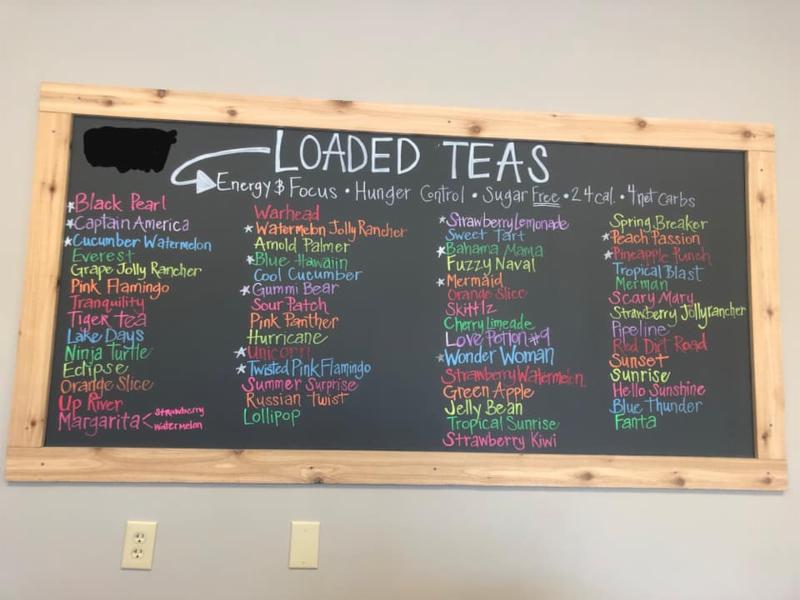 LOADED TEAS
Energy & Focus • Hunger Control • Sugar Free • 24 cal. • 4 net carbs
★ Black Pearl
★ Captain America
★ Cucumber Watermelon
Everest
Grape Jolly Rancher
Pink Flamingo
Tranquility
Tiger tea
Lake Days
Ninja Turtle
Eclipse
Orange Slice
Up River
Margarita < Strawberry
Watermelon
Warhead
★ Watermelon Jolly Rancher
Arnold Palmer
★ Blue Hawaiin
Cool Cucumber
★ Gummi Bear
Sour Patch
Pink Panther
Hurricane
★ Unicorn
★ Twisted Pink Flamingo
Summer Surprise
Russian Twist
Lollipop
★ Strawberry Lemonade
Sweet Tart
★ Bahama Mama
Fuzzy Naval
★ Mermaid
Orange Slice
Skittlz
Cherry Limeade
Love Potion #9
★ Wonder Woman
Strawberry Watermelon
Green Apple
Jelly Bean
Tropical Sunrise
Strawberry Kiwi
Spring Breaker
★ Peach Passion
★ Pineapple Punch
Tropical Blast
Merman
Scary Mary
Strawberry Jollyrancher
Pipeline
Red Dirt Road
Sunset
Sunrise
Hello Sunshine
Blue Thunder
Fanta